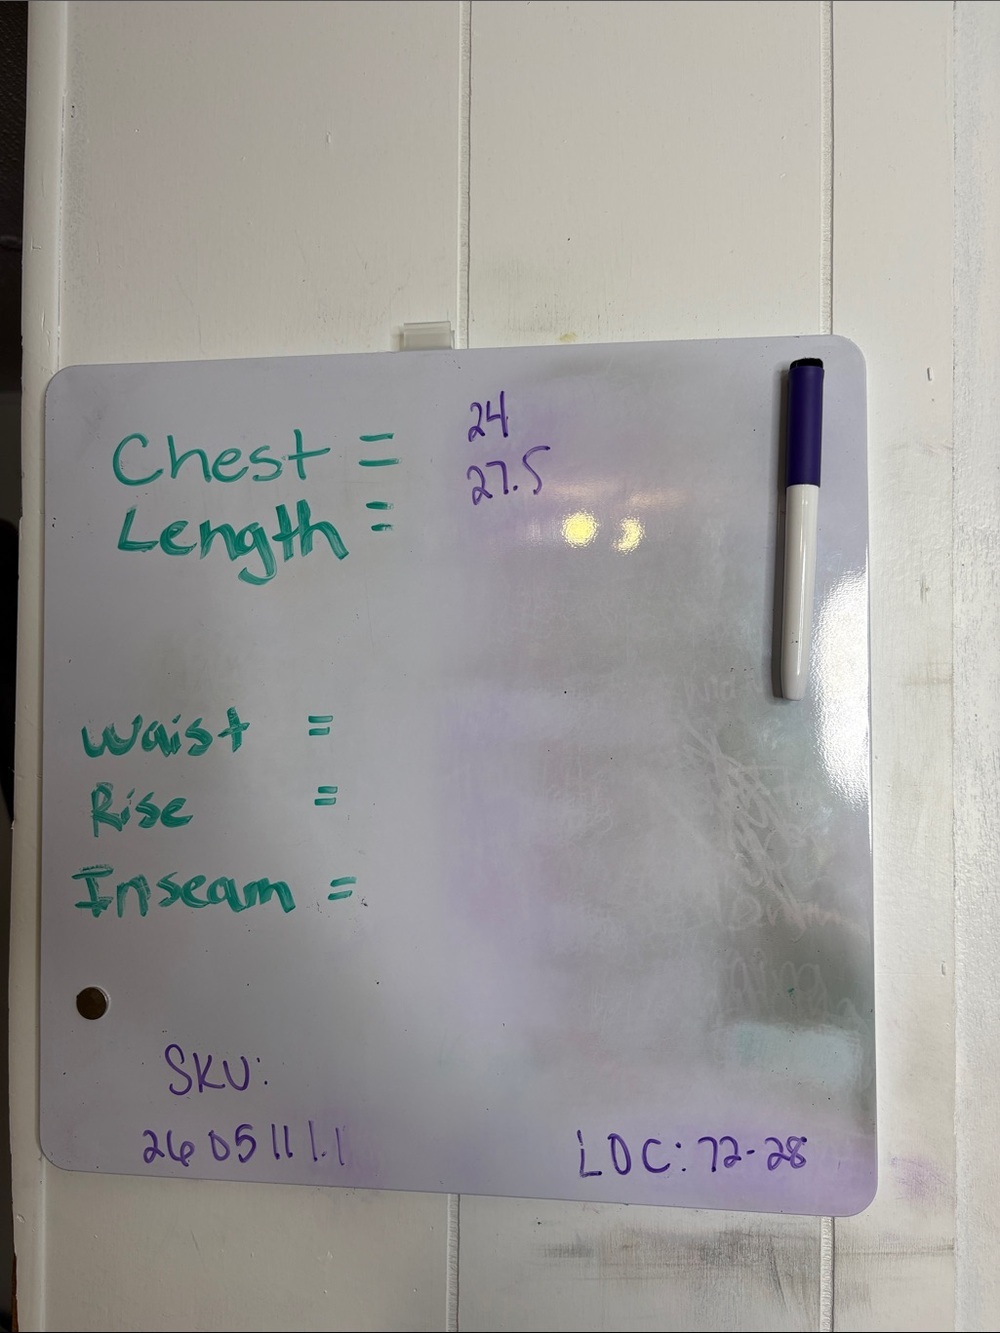 Chest = 24
Length = 27.5
Waist =
Rise =
Inseam =
SKU:
26051111.1
LOC: 72-28